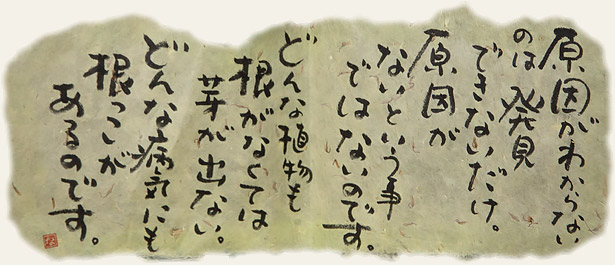 原因がわからない
のは発見
できないだけ。
原因が
ないという事
ではないのです。
どんな植物も
根がなくては
芽が出ない。
どんな病気にも
根っこが
あるのです。